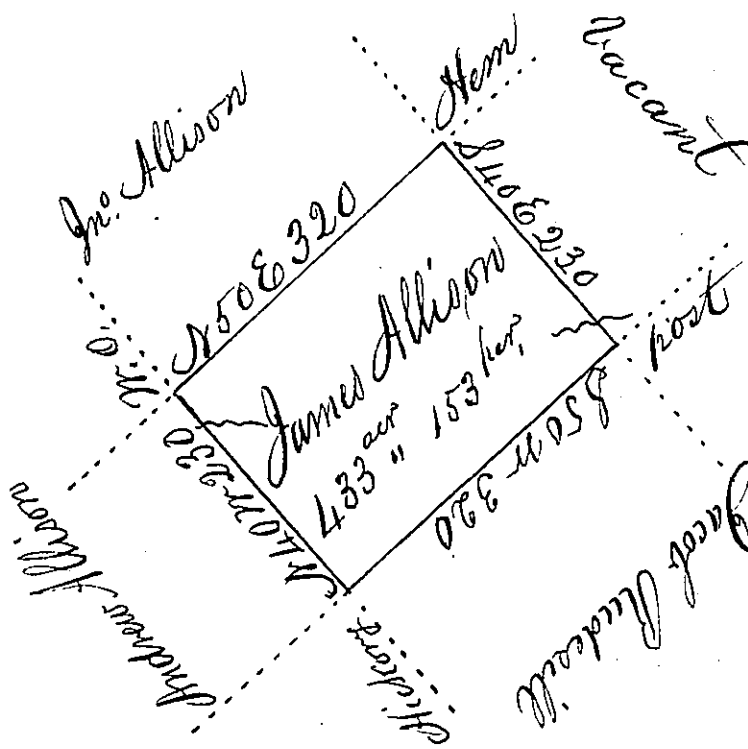 Jno. Allison
Hem
Vacant
N50E 320
S40E 230
W.O.
James Allison
433 acr " 153 per,
post
N40W 230
S50W 320
Andrew Allison
Hickory
Jacob Rudesill